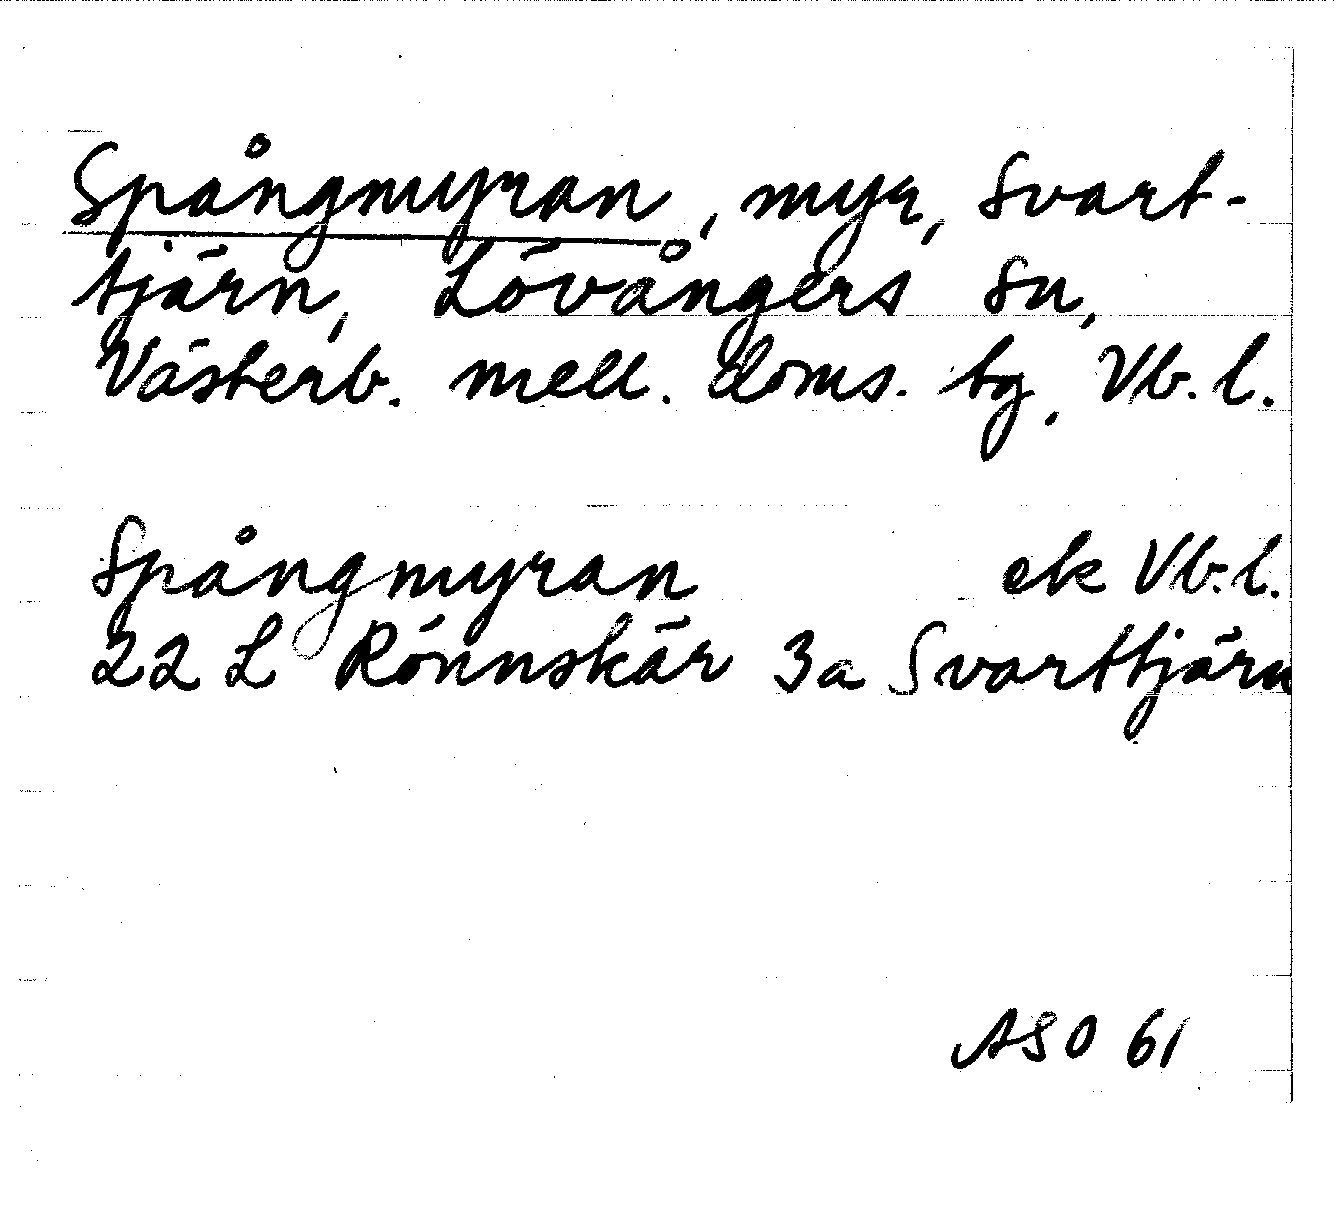 Spångmyran, myr, Svart-
tjärn, Lövångers sn,
Västerb. mell. doms. tg. Vb. l.
Spångmyran ek Vb. l.
22 L Rönnskär 3a Svarttjärn
ASO 61